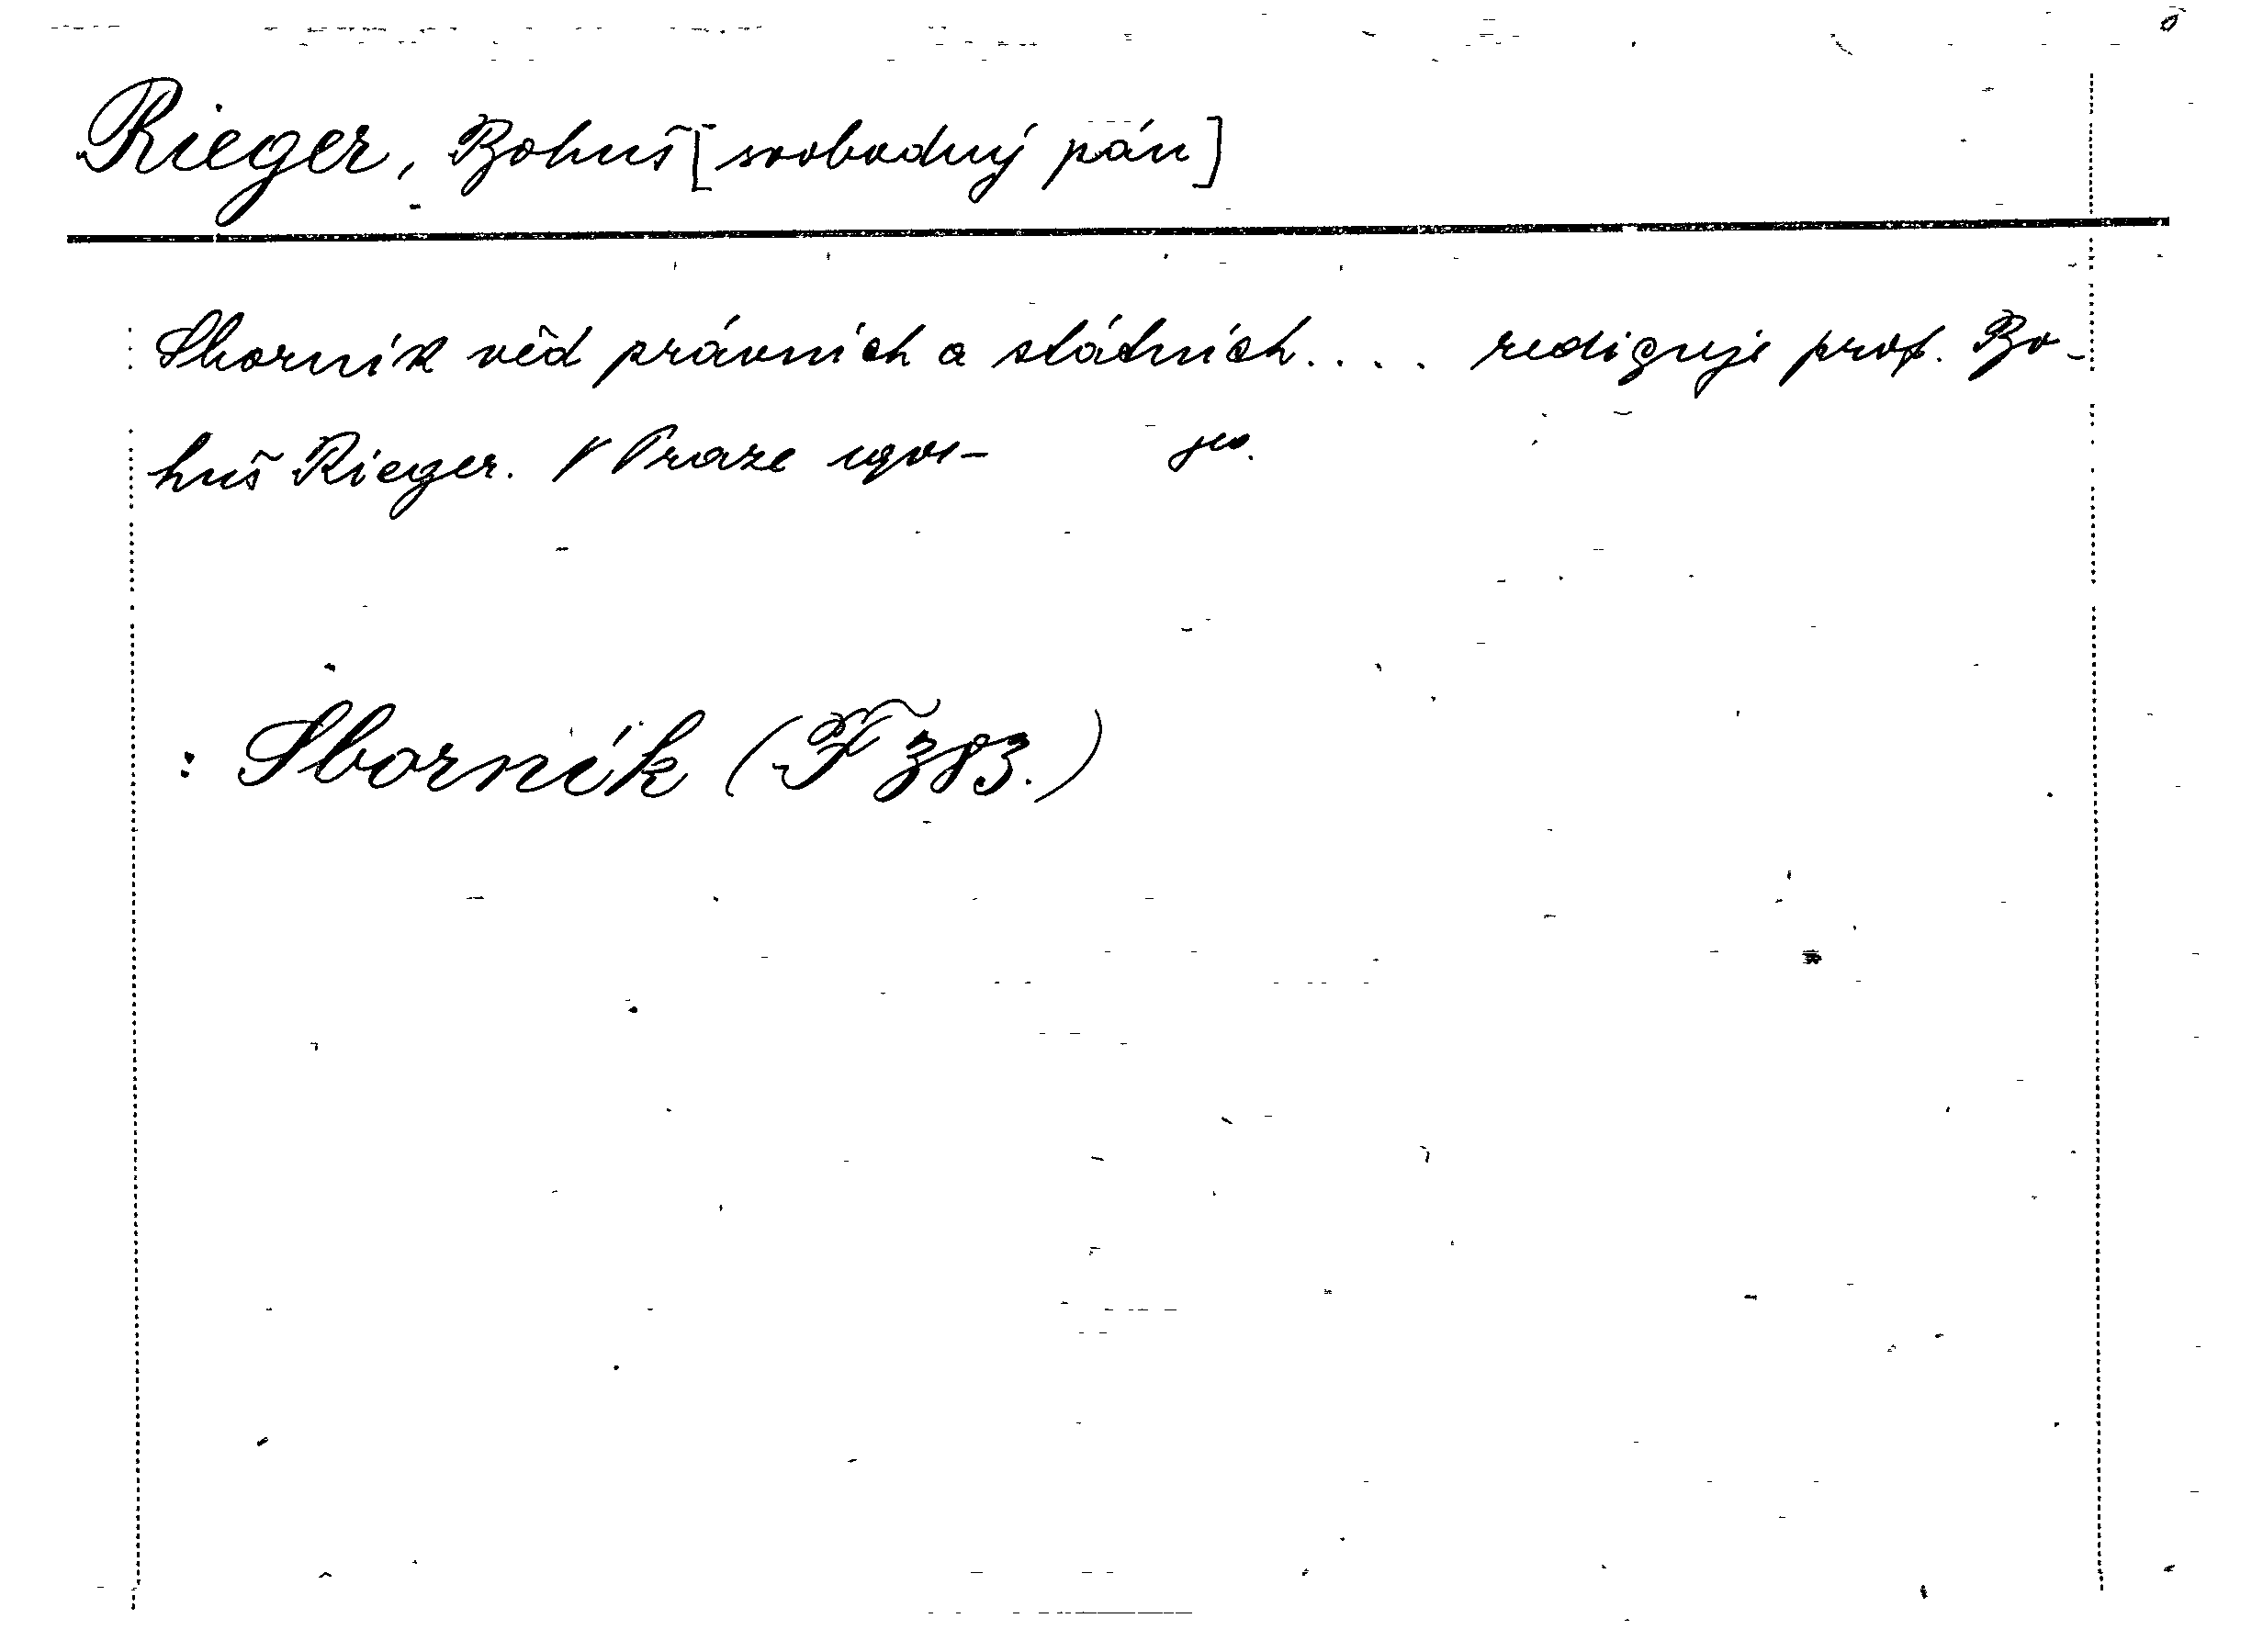 Rieger, Bohuš [svobodný pán]
Sborník věd právních a státních.... rediguje prof. Bo-
huš Rieger. V Praze 1901-
: Sborník (F 383.)